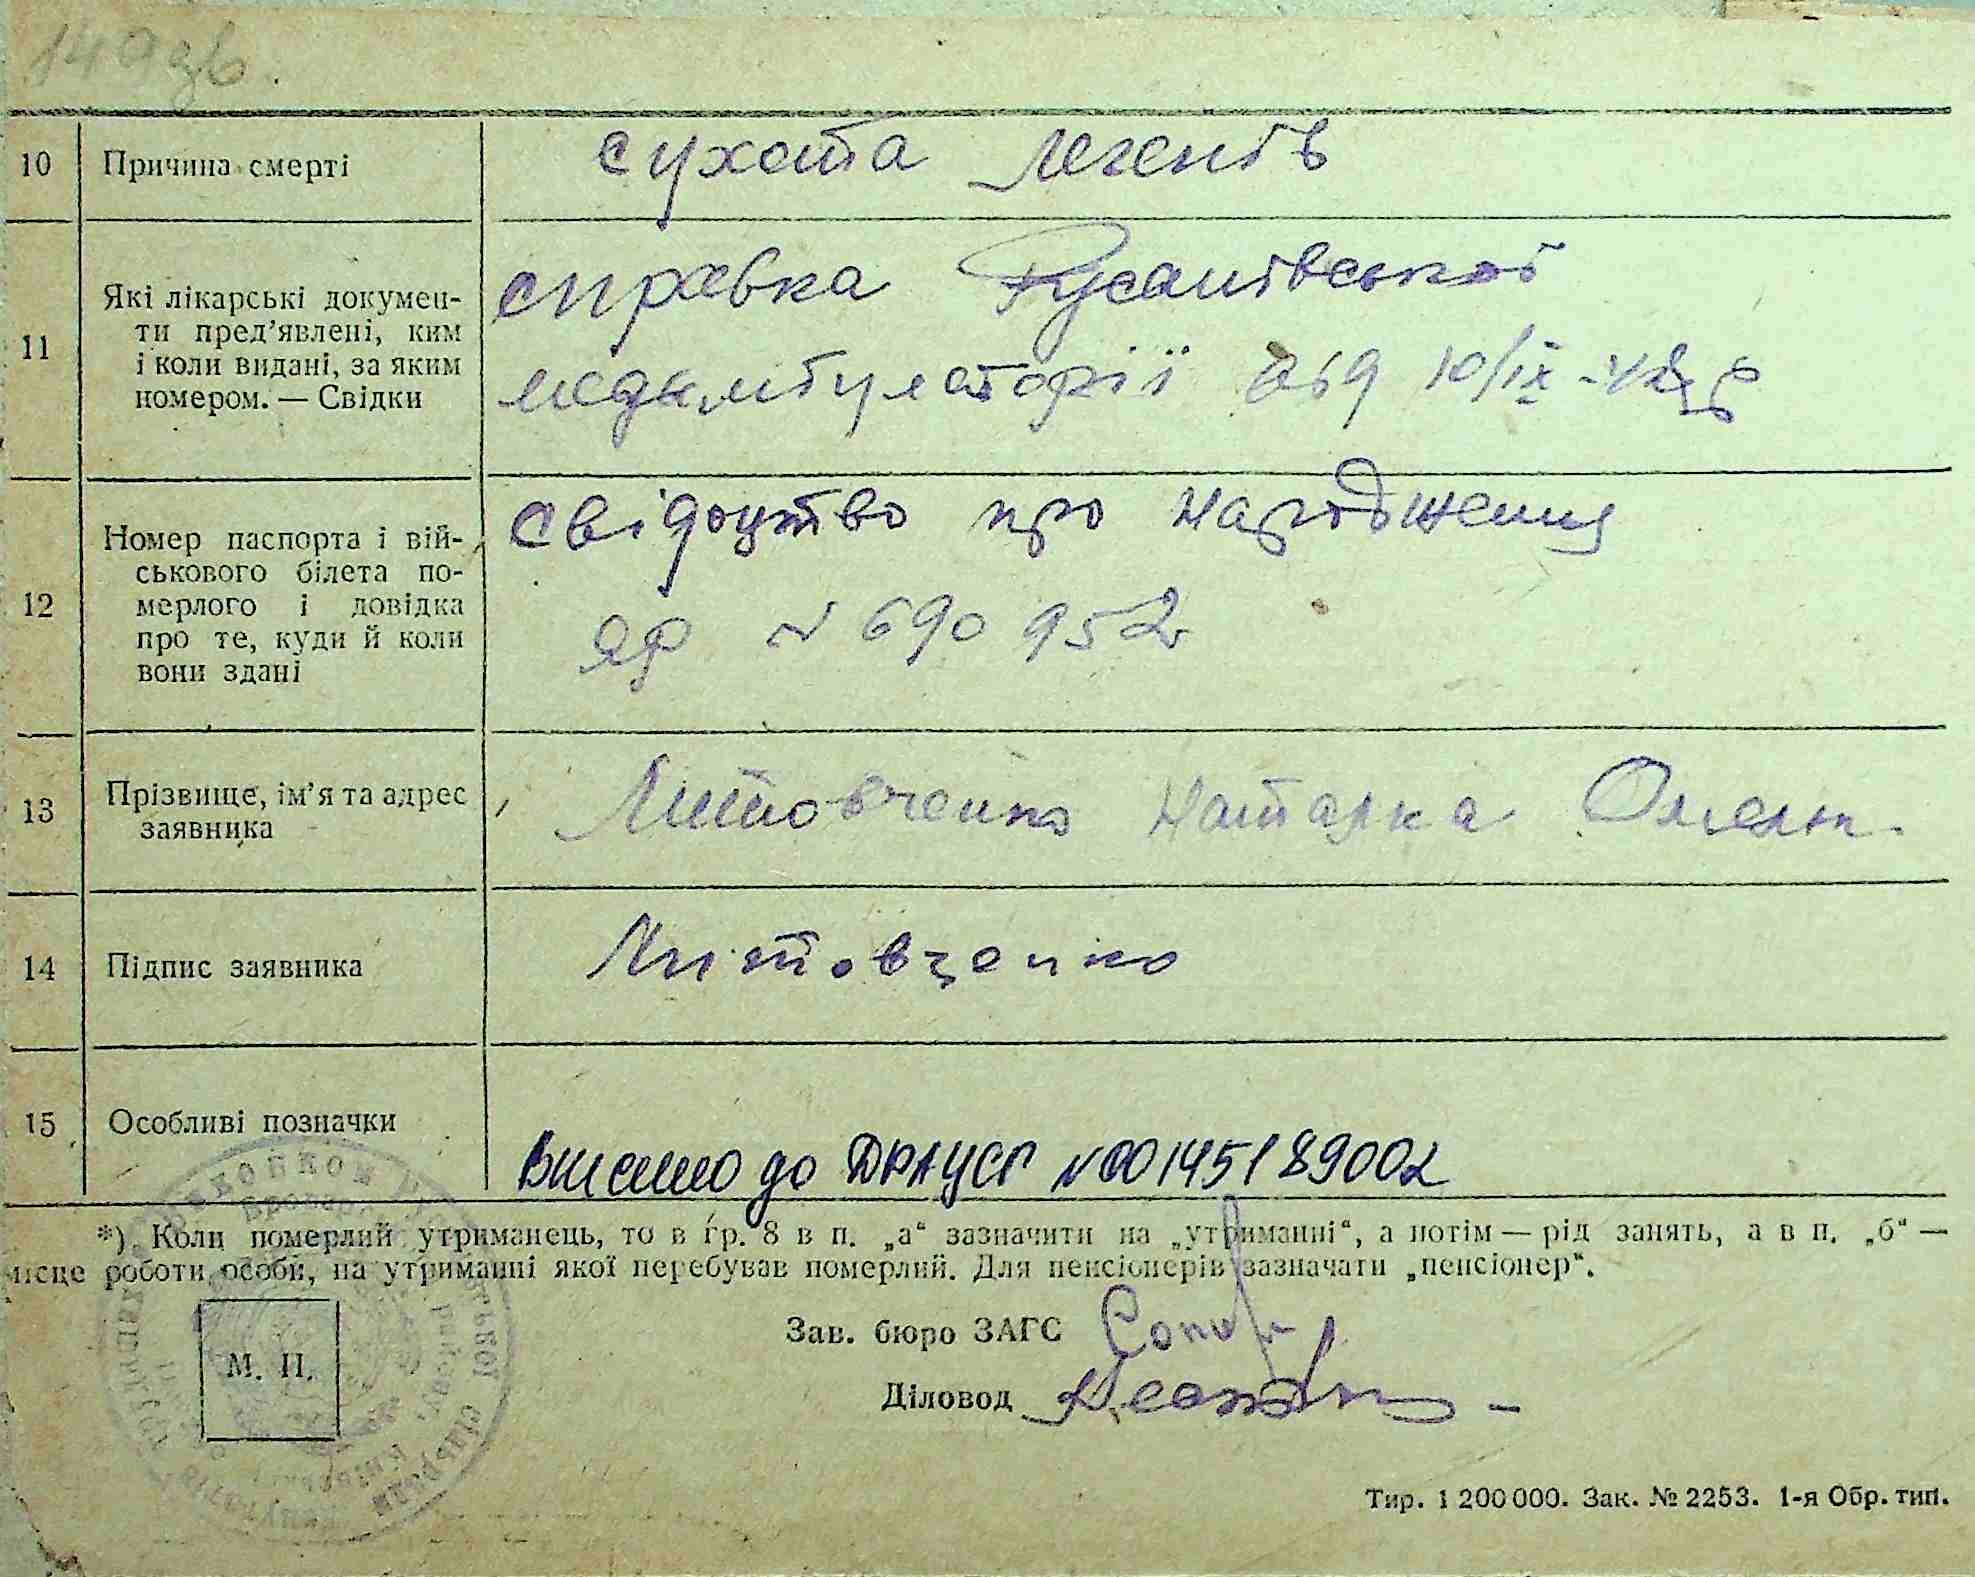 149зв.
10 Причина смерті сухота легенів
11 Які лікарські докумен-
ти пред’явлені, ким
і коли видані, за яким
номером. — Свідки
справка Русанівської
медамбулаторії від 10/IX
12 Номер паспорта і вій-
ськового білета по-
мерлого і довідка
про те, куди й коли
вони здані
свідоцтво про народження
ЯФ № 690952
13 Прізвище, ім’я та адрес
заявника
Литовченко Наталка Омельк.
14 Підпис заявника Литовченко
15 Особливі позначки
Внесено до ДРАЦСГ №00145189002
*) Коли померлий утриманець, то в гр. 8 в п. „а“ зазначити на „утриманні“, а потім — рід занять, а в п. „б“ —
місце роботи особи, на утриманні якої перебував померлий. Для пенсіонерів зазначати „пенсіонер“.
М. П.
Зав. бюро ЗАГС
Діловод
Тир. 1 200 000. Зак. № 2253. 1-я Обр. тип.